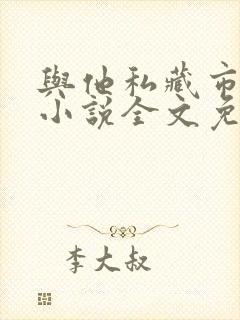 與他私藏市
小說全文免
李大叔